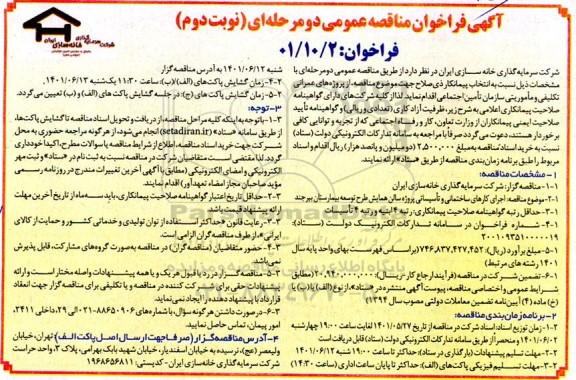 آگهی فراخوان مناقصه عمومی دو مرحله‌ای (نوبت دوم)
شرکت سرمایه‌گذاری خانه‌سازی ایران
فراخوان: ۰۱/۱۰/۲
شرکت سرمایه گذاری خانه سازی ایران در نظر دارد از طریق مناقصه عمومی دو مرحله‌ای با
مشخصات ذیل نسبت به انتخاب پیمانکار ذی‌صلاح جهت موضوع مناقصه، از پروژه‌های عمرانی
تکلیفی و مأموریتی سازمان تأمین اجتماعی اقدام نماید. لذا از کلیه شرکت‌های دارای گواهینامه
صلاحیت پیمانکاری اعلامی به شرح زیر، ظرفیت آزاد کاری (تعدادی و ریالی) و گواهینامه تأیید
صلاحیت ایمنی پیمانکاران از وزارت تعاون، کار و رفاه اجتماعی که از تجربه و توانایی کافی
برخوردار هستند، دعوت می‌گردد صرفاً با مراجعه به سامانه تدارکات الکترونیکی دولت (ستاد)
نسبت به خرید اسناد مناقصه به مبلغ ۲,۵۰۰,۰۰۰ (دو میلیون و پانصد هزار) ریال اقدام و اسناد
مربوط را طبق برنامه زمان‌بندی مناقصه از طریق «ستاد» ارائه نمایند.
۱- مشخصات مناقصه:
۱-۱- مناقصه گزار: شرکت سرمایه گذاری خانه سازی ایران
۲-۱- موضوع مناقصه: اجرای کارهای ساختمانی و تأسیساتی پروژه سالن همایش طرح توسعه بیمارستان بیرجند
۳-۱- حداقل رتبه گواهینامه صلاحیت پیمانکاری: رتبه ۵ ابنیه و رتبه ۵ تأسیسات
۴-۱- شماره فراخوان در سامانه تدارکات الکترونیک دولت (ستاد):
۲۰۰۱۰۹۳۵۱۰۰۰۰۰۱۹
۵-۱- مبلغ برآورد (ریال): ۷۴۶,۸۳۷,۴۲۷,۴۵۲ (براساس فهرست بهای واحد پایه سال
۱۴۰۱ رشته های مرتبط)
۶-۱- تضمین شرکت در مناقصه (فرآیند ارجاع کار - ریال): ۲۰,۹۴۰,۰۰۰,۰۰۰ (مطابق
شرایط عمومی و اختصاصی مناقصه، پیوست آگهی منتشره در «ستاد»، از نوع (الف) یا (ب) یا
(خ) ماده (۴) آیین‌نامه تضمین معاملات دولتی مصوب سال ۱۳۹۴)
۲- برنامه زمان‌بندی مناقصه:
۱-۲- زمان توزیع اسناد: اسناد شرکت در مناقصه از تاریخ ۱۴۰۱/۰۵/۲۷ لغایت ساعت ۱۹:۰۰ چهارشنبه
۱۴۰۱/۰۶/۰۲ و منحصراً از طریق سامانه تدارکات الکترونیکی دولت (ستاد) قابل دریافت است
۲-۲- مهلت تسلیم پیشنهادات (بارگذاری در ستاد): حداکثر تا ساعت ۱۹:۰۰ شنبه ۱۴۰۱/۰۶/۱۲
۳-۲- مهلت تسلیم فیزیکی پاکت‌های (الف): حداکثر تا پایان ساعت اداری (ساعت ۱۴:۳۰)
شنبه ۱۴۰۱/۰۶/۱۲ به آدرس مناقصه گزار
۴-۲- زمان گشایش پاکت های (الف)/(ب): ساعت ۱۱:۳۰ یکشنبه ۱۴۰۱/۰۶/۱۳
۵-۲- زمان گشایش پاکت های (ج): در جلسه گشایش پاکت های (الف) و (ب) تعیین می‌گردد.
۳- توجه:
۱-۳- با توجه به اینکه کلیه مراحل مناقصه، از دریافت و تحویل اسناد مناقصه تا گشایش پاکت‌ها،
از طریق سامانه «ستاد» (setadiran.ir) انجام می‌شود، از هرگونه مراجعه حضوری به محل
شرکت جهت خرید اسناد مناقصه، اطلاع از شرایط مناقصه یا سوالات مطرح، اکیداً خودداری
گردد. لذا مقتضی است متقاضیان شرکت در مناقصه نسبت به ثبت نام در «ستاد» و ثبت مهر
الکترونیکی و امضای الکترونیکی (مطابق با آگهی آخرین تغییرات مندرج در روزنامه رسمی
مؤید صاحبان مجاز امضاء تعهدآور) اقدام نمایند.
۲-۳- حداقل تاریخ اعتبار گواهینامه صلاحیت پیمانکاری، باید سه‌ماه از تاریخ آخرین مهلت
ارائه پیشنهاد قیمت باشد.
۳-۳- رعایت قانون «حداکثر استفاده از توان تولیدی و خدماتی کشور و حمایت از کالای
ایرانی»، از طرف مناقصه گران الزامی است.
۴-۳- حضور متقاضیان (مناقصه گران) در مناقصه به‌صورت گروه‌های مشارکت، قابل پذیرش
نمی‌باشد.
۵-۳- مناقصه گزار در رد یا قبول هر یک و یا همه پیشنهادات واصله مختار است و ارائه
پیشنهاد، حقی برای شرکت کننده در مناقصه و یا تکلیفی برای مناقصه گزار جهت انعقاد
قرارداد با پیشنهاد دهنده را ایجاد نمی‌نماید.
۶-۳- درصورت داشتن هرگونه سؤال، با شماره‌های ۸۸۶۵۰۹۰۶-۰۲۱ الی ۲۹، داخلی ۳۴۱۱،
امور پیمان، تماس حاصل نمایید.
۴- آدرس مناقصه گزار (صرفاً جهت ارسال اصل پاکت الف): تهران، خیابان
ولیعصر (عج)، نرسیده به خیابان اسفندیار، خیابان شهید بابک بهرامی، پلاک ۳، واحد حراست
شرکت سرمایه گذاری خانه سازی ایران - کدپستی: ۱۹۶۸۶۵۶۸۱۱